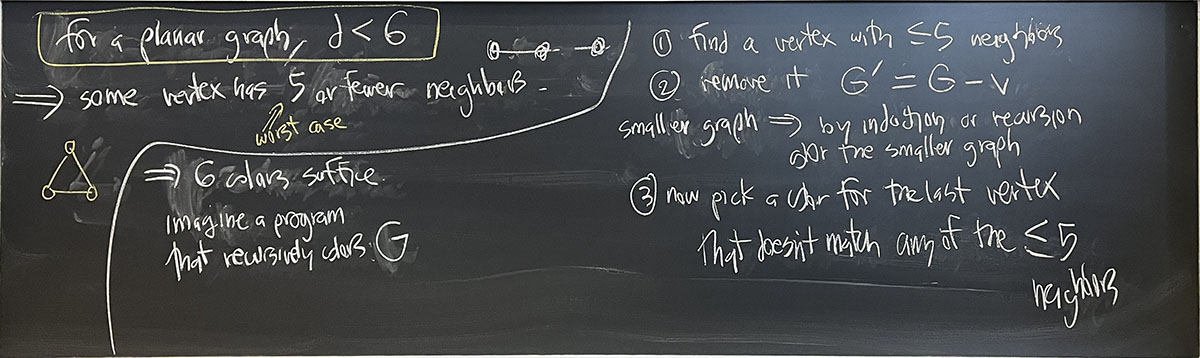 for a planar graph, d < 6
⟹ some vertex has 5 or fewer neighbors.
worst case
⟹ 6 colors suffice.
imagine a program
that recursively colors G
① find a vertex with ≤5 neighbors
② remove it G' = G - v
smaller graph ⟹ by induction or recursion
color the smaller graph
③ now pick a color for the last vertex
that doesn't match any of the ≤5
neighbors